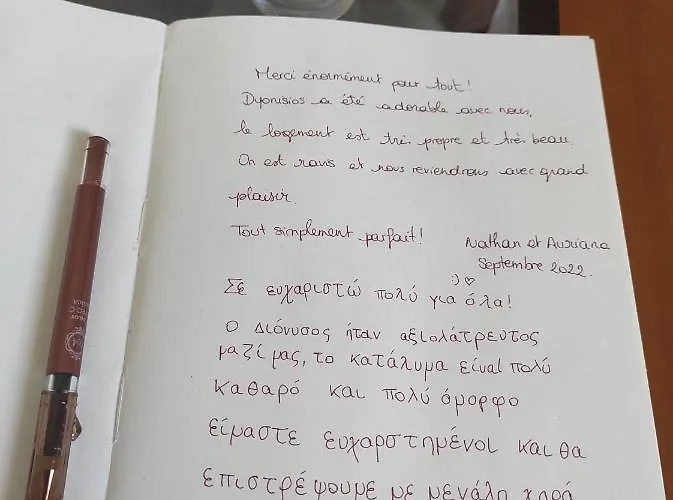 Merci énormément pour tout!
Dyonisios a été adorable avec nous,
le logement est très propre et très beau.
On est ravis et nous reviendrons avec grand
plaisir.
Tout simplement parfait!
Nathan et Auriana
Septembre 2022.
:) ♡
Σε ευχαριστώ πολύ για όλα!
Ο Διόνυσος ήταν αξιολάτρευτος
μαζί μας, το κατάλυμα είναι πολύ
καθαρό και πολύ όμορφο
είμαστε ευχαρστημένοι και θα
επιστρέψουμε με μεγάλη χαρά